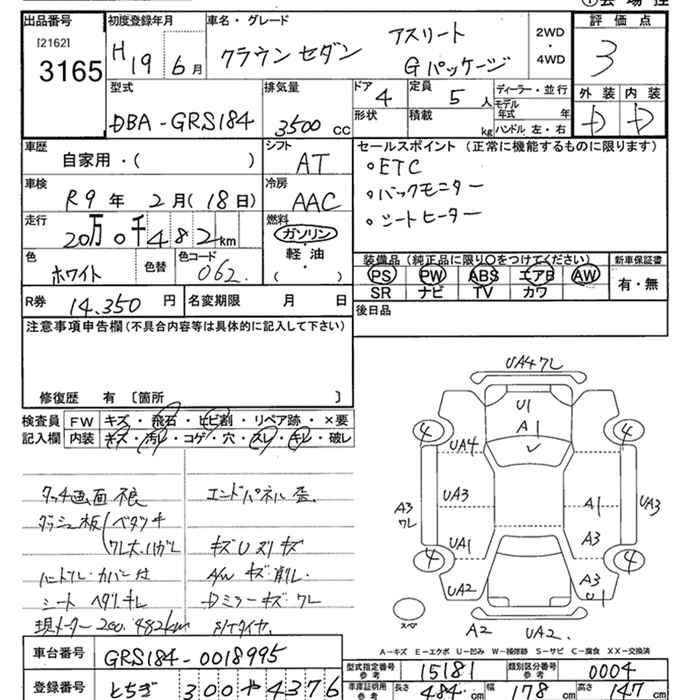 出品番号
[2162]
3165
初度登録年月
H19 6月
車名・グレード
クラウンセダン アスリート
Gパッケージ
2WD
・
4WD
評価点
3
外装 内装
D D
型式
DBA-GRS184
排気量
3500cc
ドア 4
形状
定員 5人
積載 kg
ディーラー・並行
モデル年式 年
ハンドル 左・右
車歴
自家用・( )
シフト
AT
車検
R9年 2月(18日)
冷房
AAC
走行
20万0千482km
燃料
ガソリン
・
軽・油
( )
色
ホワイト
色替
色コード
062
R券 14.350円
名変期限 月 日
セールスポイント(正常に機能するものに限ります)
○ETC
○バックモニター
○シートヒーター
装備品(純正品に限り○をつけてください)
PS PW ABS エアB AW
SR ナビ TV カワ
新車保証書
有・無
後日品
注意事項申告欄(不具合内容等は具体的に記入して下さい)
修復歴 有 〔箇所 〕
検査員
記入欄
FW キズ・飛石・ヒビ割・リペア跡・×要
内装 キズ・汚レ・コゲ・穴・スレ・キレ・破レ
タッチ画面 不良
エンドパネル 歪.
ダッシュ板(ベタツキ
ワレ大、ハガレ
キズUヌリキズ
ハンドル・カバー付
A/W キズ・削レ・
シート ヘタリキレ
Dミラーキズ・ワレ
現メーター200.482km
UA4ワレ
U1
A1
4 4
UA4
A3
ワレ
UA3
A1
UA3
A3
UA1
4 4
UA2
A3
U1
スペア
A2
UA2.
A-キズ E-エクボ U-凹み W-補修跡 S-サビ C-腐食 XX-交換済
車台番号
GRS184-0018995
登録番号
とちぎ 300 や 4376
型式指定番号
参考
15181
類別区分番号
参考
0004
車庫証明用
参考
長さ 484cm 幅 178cm 高さ 147cm